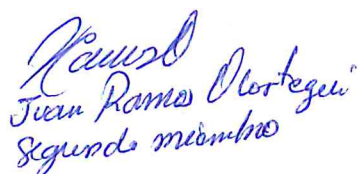 Juan Ramos Olortegui
Segundo miembro